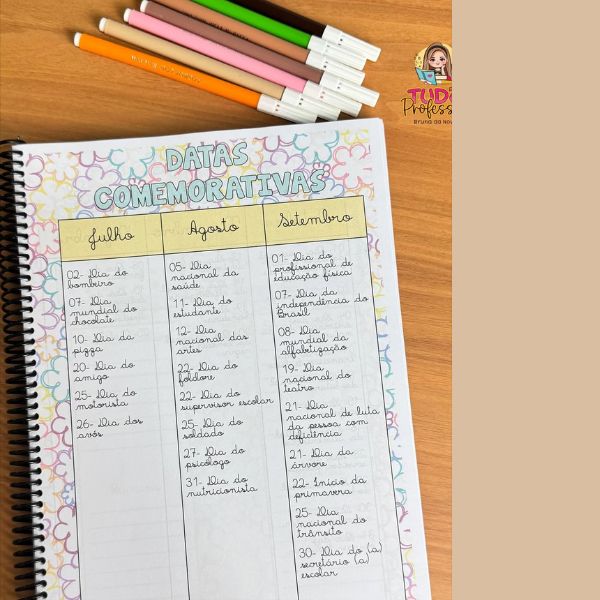 DATAS
COMEMORATIVAS
Julho
02- Dia do
bombeiro
07- Dia
mundial do
chocolate
10- Dia da
pizza
20- Dia do
amigo
25- Dia do
motorista
26- Dia dos
avós
Agosto
05- Dia
nacional da
saúde
11- Dia do
estudante
12- Dia
nacional das
artes
22- Dia do
folclore
22- Dia do
supervisor escolar
25- Dia do
soldado
27- Dia do
psicólogo
31- Dia do
nutricionista
Setembro
01- Dia do
profissional de
educação física
07- Dia da
independência do
Brasil
08- Dia
mundial da
alfabetização
19- Dia
nacional do
teatro
21- Dia
nacional de luta
da pessoa com
deficiência
21- Dia da
árvore
22- Início da
primavera
25- Dia
nacional do
trânsito
30- Dia do (a)
secretário (a)
escolar
Bruna da